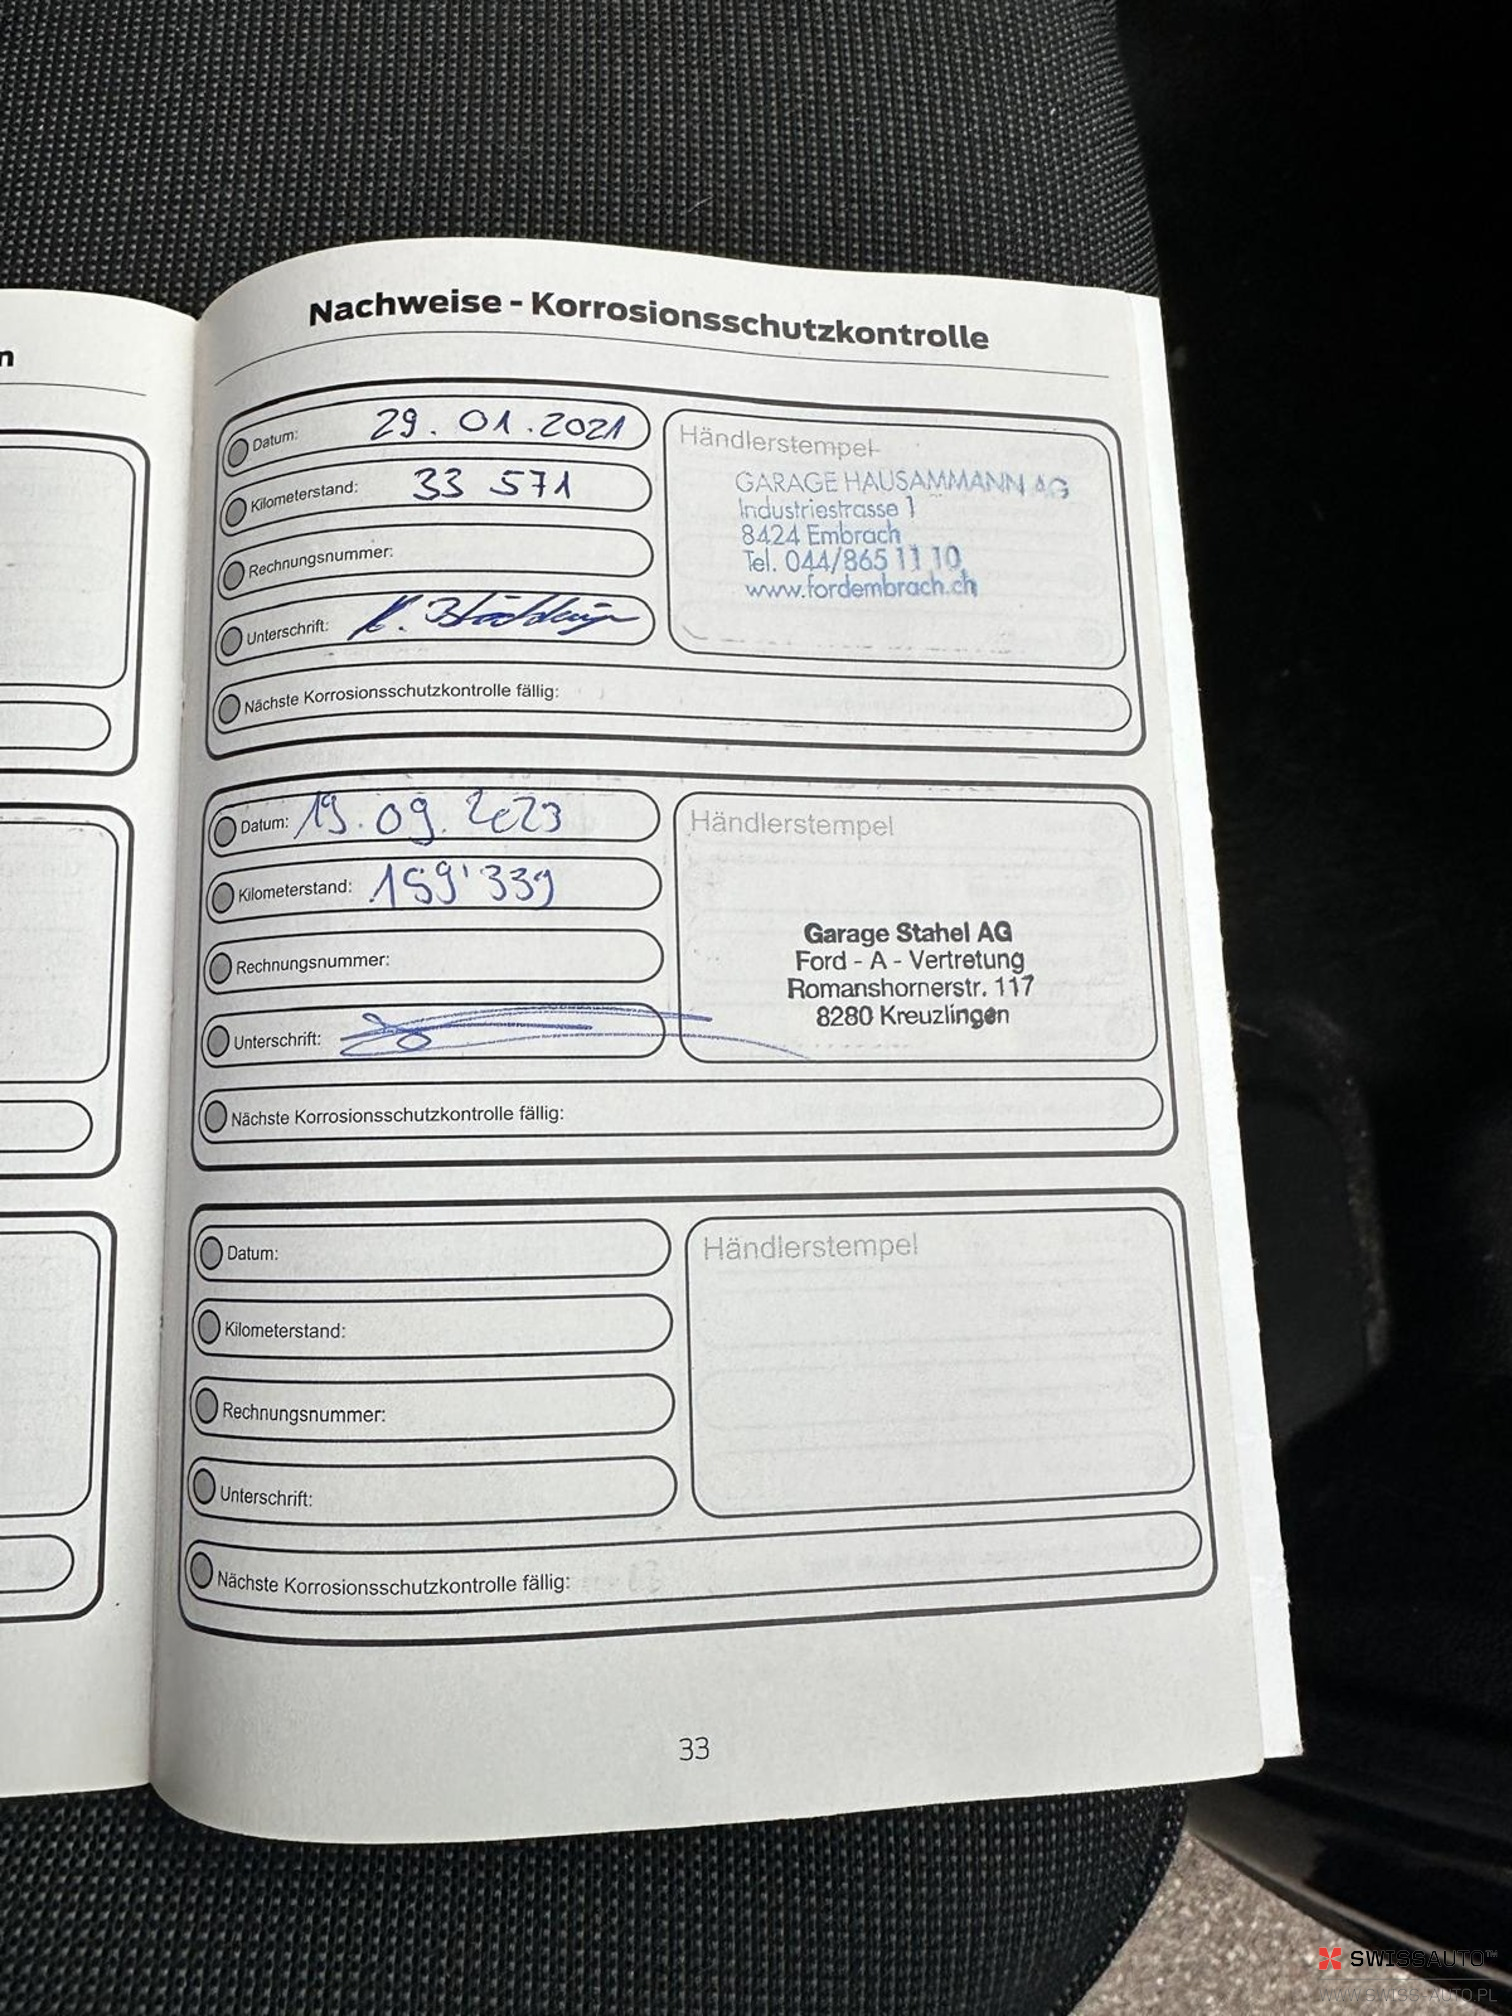 n
Nachweise - Korrosionsschutzkontrolle
Datum: 29.01.2021
Kilometerstand: 33 571
Rechnungsnummer:
Unterschrift:
Händlerstempel
GARAGE HAUSAMMANN AG
Industriestrasse 1
8424 Embrach
Tel. 044/865 11 10
www.fordembrach.ch
Nächste Korrosionsschutzkontrolle fällig:
Datum: 19.09.2023
Kilometerstand: 159'339
Rechnungsnummer:
Unterschrift:
Händlerstempel
Garage Stahel AG
Ford - A - Vertretung
Romanshornerstr. 117
8280 Kreuzlingen
Nächste Korrosionsschutzkontrolle fällig:
Datum:
Kilometerstand:
Rechnungsnummer:
Unterschrift:
Händlerstempel
Nächste Korrosionsschutzkontrolle fällig:
33
SWISSAUTO™
WWW.SWISS-AUTO.PL